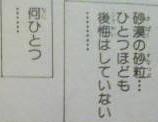 砂漠の砂粒…
ひとつほども
後悔はしていない
………
何ひとつ
………